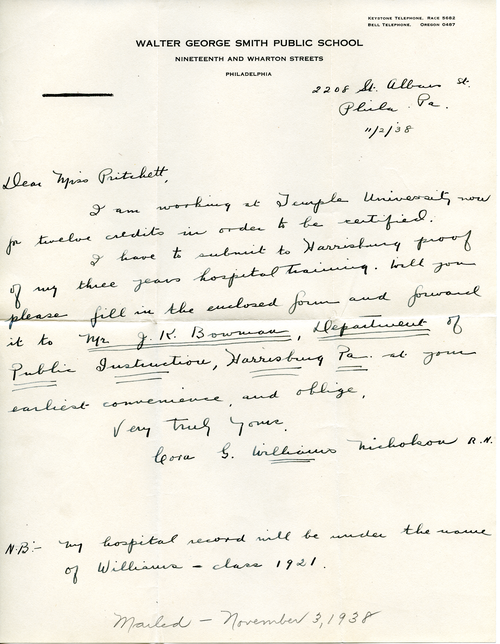 KEYSTONE TELEPHONE, RACE 5682
BELL TELEPHONE, OREGON 0487
WALTER GEORGE SMITH PUBLIC SCHOOL
NINETEENTH AND WHARTON STREETS
PHILADELPHIA
2208 St. Albans St.
Phila. Pa.
11/2/38
Dear Miss Pritchett,
I am working at Temple University now
for twelve credits in order to be certified.
I have to submit to Harrisburg proof
of my three years hospital training. Will you
please fill in the enclosed form and forward
it to Mr. J. K. Bowman, Department of
Public Instruction, Harrisburg Pa. at your
earliest convenience, and oblige,
Very truly yours,
Cora G. Williams Nicholson R.N.
N.B:- My hospital record will be under the name
of Williams - class 1921.
Mailed - November 3, 1938